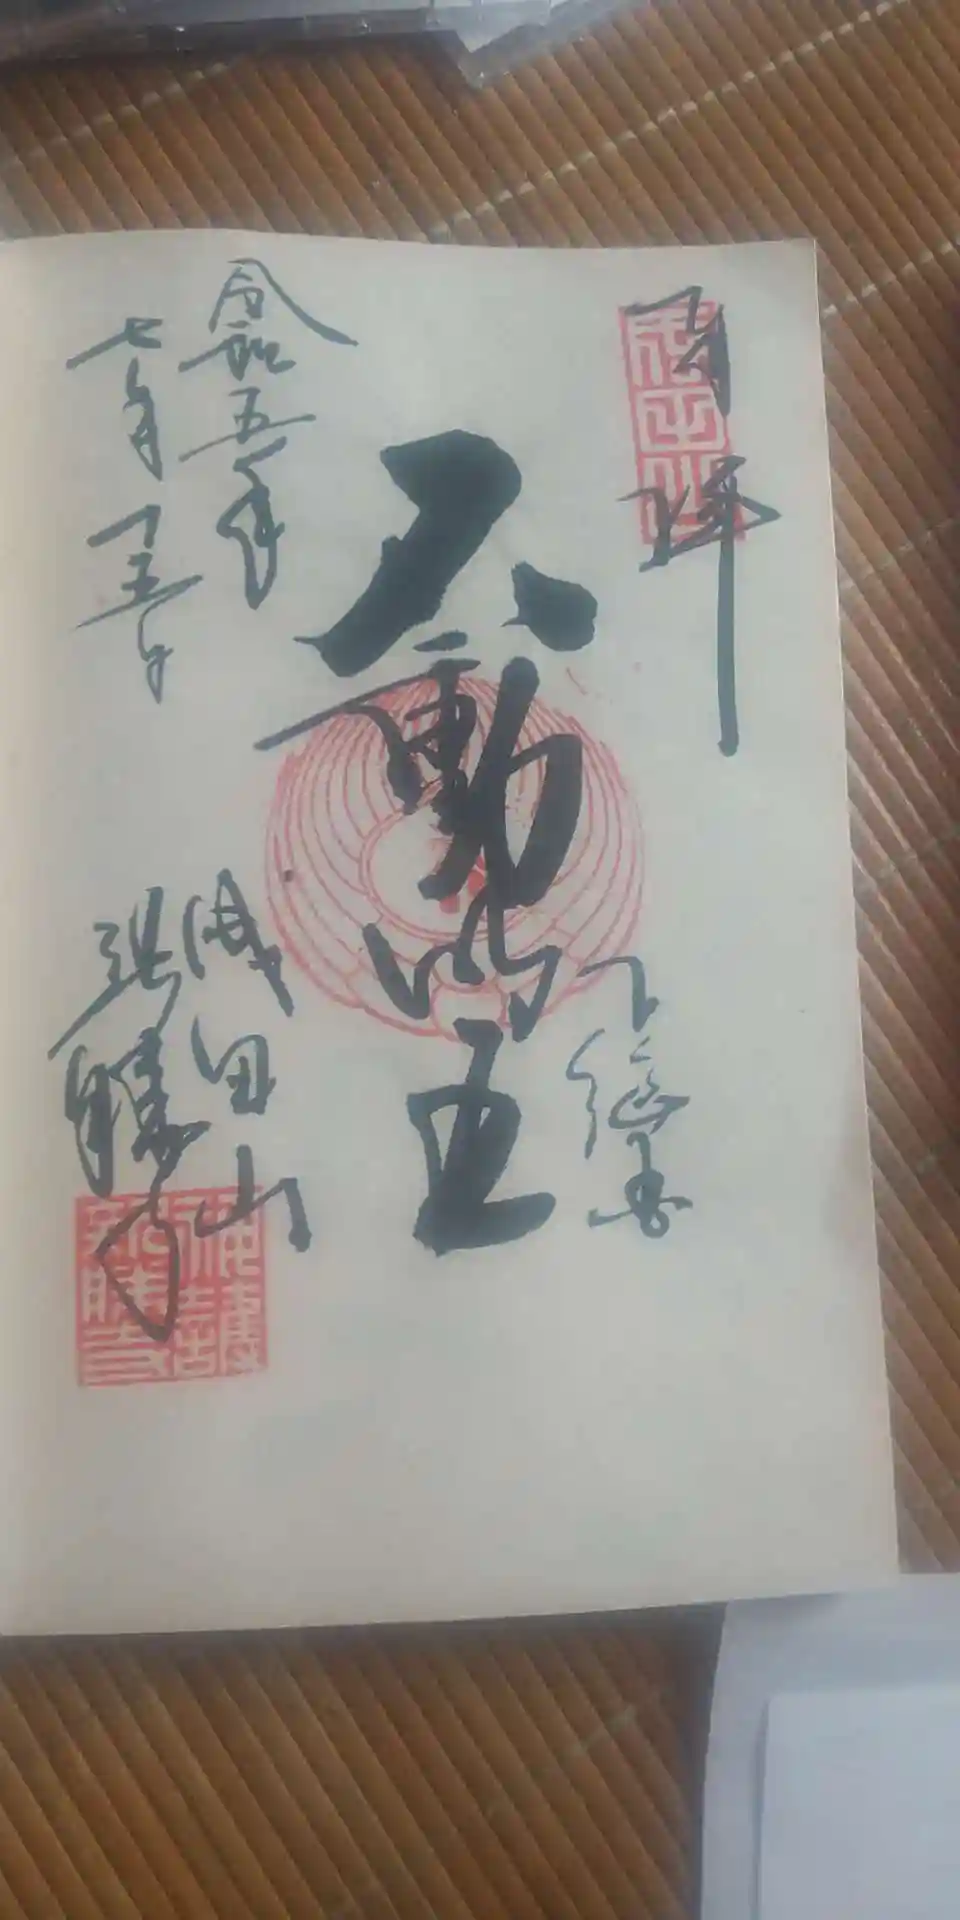 奉拝
不動明王
令和五年
七月十五日
成田山
新勝寺